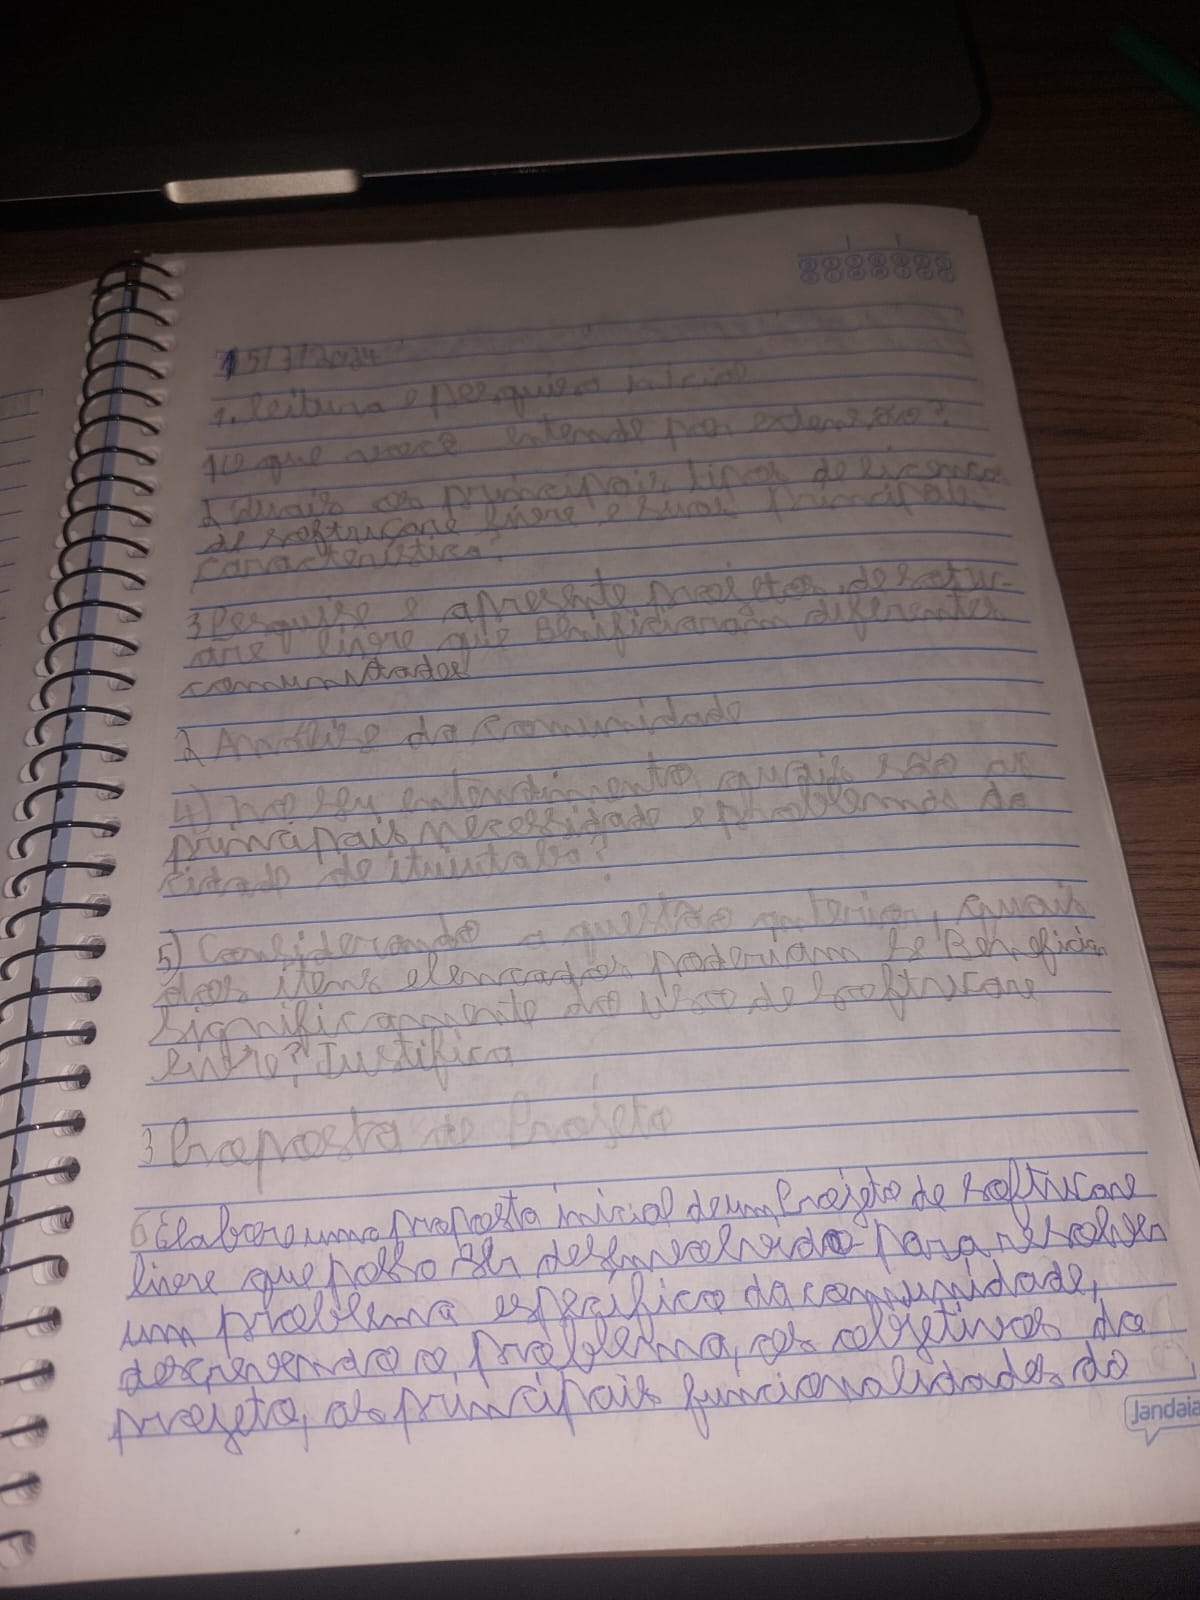 15/7/2024
1. leitura e pesquisa inicial
1) o que você entende por extensão?
2 Quais os principais tipos de licença
de softwcare livre e suas principale
caracteristica?
3 Pesquise e apresente projetos de sotw-
are livre que Benificiaram diferentes
comunidades
2 Análise da comunidade
4) No seu entendimento, quais são as
principais necessidade e problemas da
cidade de ituiutaba?
5) Considerando a questão anterior, quais
dos itens elencados poderiam se Beneficiar
significamente do uso de softwcare
livre? Justifica
3 Proposta de Projeto
6 Elabore uma proposta inicial de um Projeto de softwcare
livre que possa ser desenvolvido para resolver
um problema especifico da comunidade,
descrevendo o problema, os objetivos do
projeto, as principais funcionalidades do
Jandaia